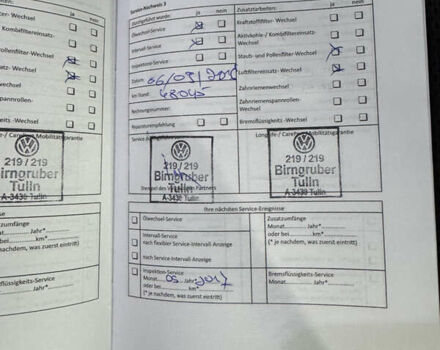 nein
-Wechsel
/ Kombifiltereinsatz-
Wechsel
Pollenfilter-Wechsel
satz- Wechsel
n-Wechsel
spannrollen-
Wechsel
-/ CarePort Mobilitätsgarantie
219 / 219
Birngruber
Tulln
A-3430 Tulln
mfänge
Jahr*
km*
was zuerst eintritt)
igkeits-Service
Jahr*
Service-Nachweis 3
Durchgeführt wurde: ja nein
Ölwechsel-Service
Intervall-Service
Inspektions-Service
Datum:
km-Stand: 48045
Rechnungsnummer:
Reparaturempfehlung
Zusatzarbeiten: ja nein
Kraftstofffilter- Wechsel
Aktivkohle-/ Kombifiltereinsatz-
Wechsel
Staub- und Pollenfilter-Wechsel
Luftfiltereinsatz- Wechsel
Zahnriemen-Wechsel
Zahnriemenspannrollen-
Wechsel
Bremsflüssigkeits -Wechsel
219 / 219
Birngruber
Tulln
A-3430 Tulln
Stempel des Partners
219 / 219
Birngruber
Tulln
A-3430 Tulln
Ihre nächsten Service-Ereignisse
Ölwechsel-Service
Intervall-Service
nach flexibler Service-Intervall-Anzeige
nach Service-Intervall-Anzeige
Zusatzumfänge
Monat Jahr*
oder bei km*
(* je nachdem, was zuerst eintritt)
Inspektion-Service
Monat 05 Jahr* 2017
oder bei km*
(* je nachdem, was zuerst eintritt)
Bremsflüssigkeits-Service
Monat Jahr*